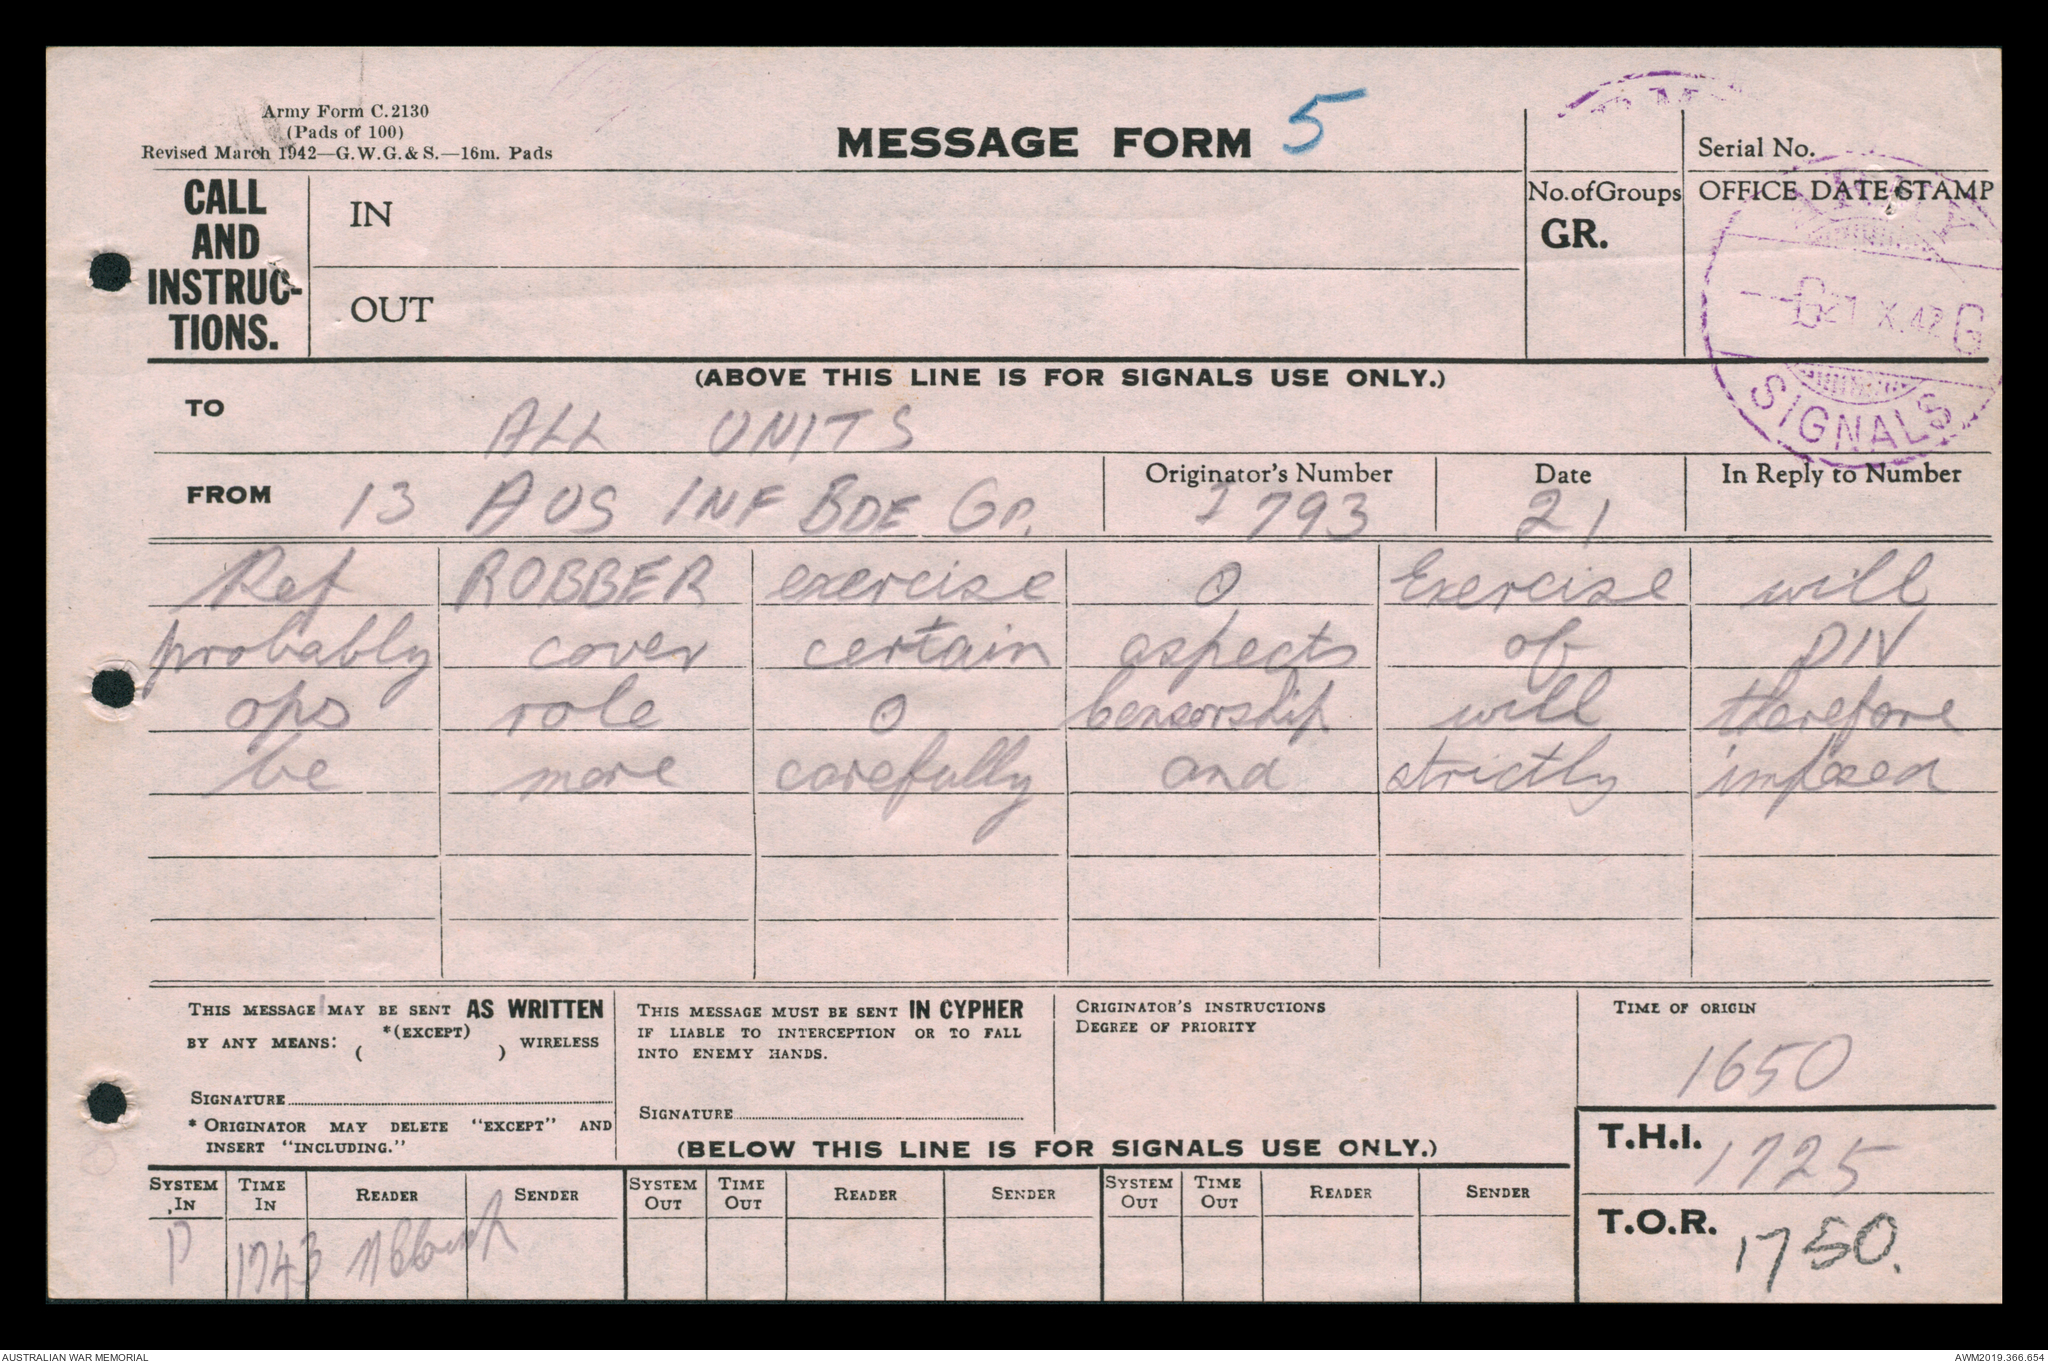 Army Form C.2130
(Pads of 100)
Revised March 1942—G.W.G.& S.—16m. Pads
MESSAGE FORM 5
Serial No.
CALL AND INSTRUC-TIONS.
IN
OUT
No. of Groups
GR.
OFFICE DATE STAMP
21 X.42 G
SIGNALS
(ABOVE THIS LINE IS FOR SIGNALS USE ONLY.)
TO ALL UNITS
FROM 13 AUS INF BDE GP.
Originator's Number I 793
Date 21
In Reply to Number
Ref ROBBER exercise O Exercise will
probably cover certain aspects of DIV
ops role O Censorship will therefore
be more carefully and strictly imposed
THIS MESSAGE MAY BE SENT AS WRITTEN
*(EXCEPT)
BY ANY MEANS: ( ) WIRELESS
SIGNATURE
* ORIGINATOR MAY DELETE "EXCEPT" AND
INSERT "INCLUDING."
THIS MESSAGE MUST BE SENT IN CYPHER
IF LIABLE TO INTERCEPTION OR TO FALL
INTO ENEMY HANDS.
SIGNATURE
CRIGINATOR'S INSTRUCTIONS
DEGREE OF PRIORITY
TIME OF ORIGIN
1650
(BELOW THIS LINE IS FOR SIGNALS USE ONLY.)
T.H.I. 1725
T.O.R. 1750.
SYSTEM IN TIME IN READER SENDER SYSTEM OUT TIME OUT READER SENDER SYSTEM OUT TIME OUT READER SENDER
P 1743
AUSTRALIAN WAR MEMORIAL
AWM2019.366.654